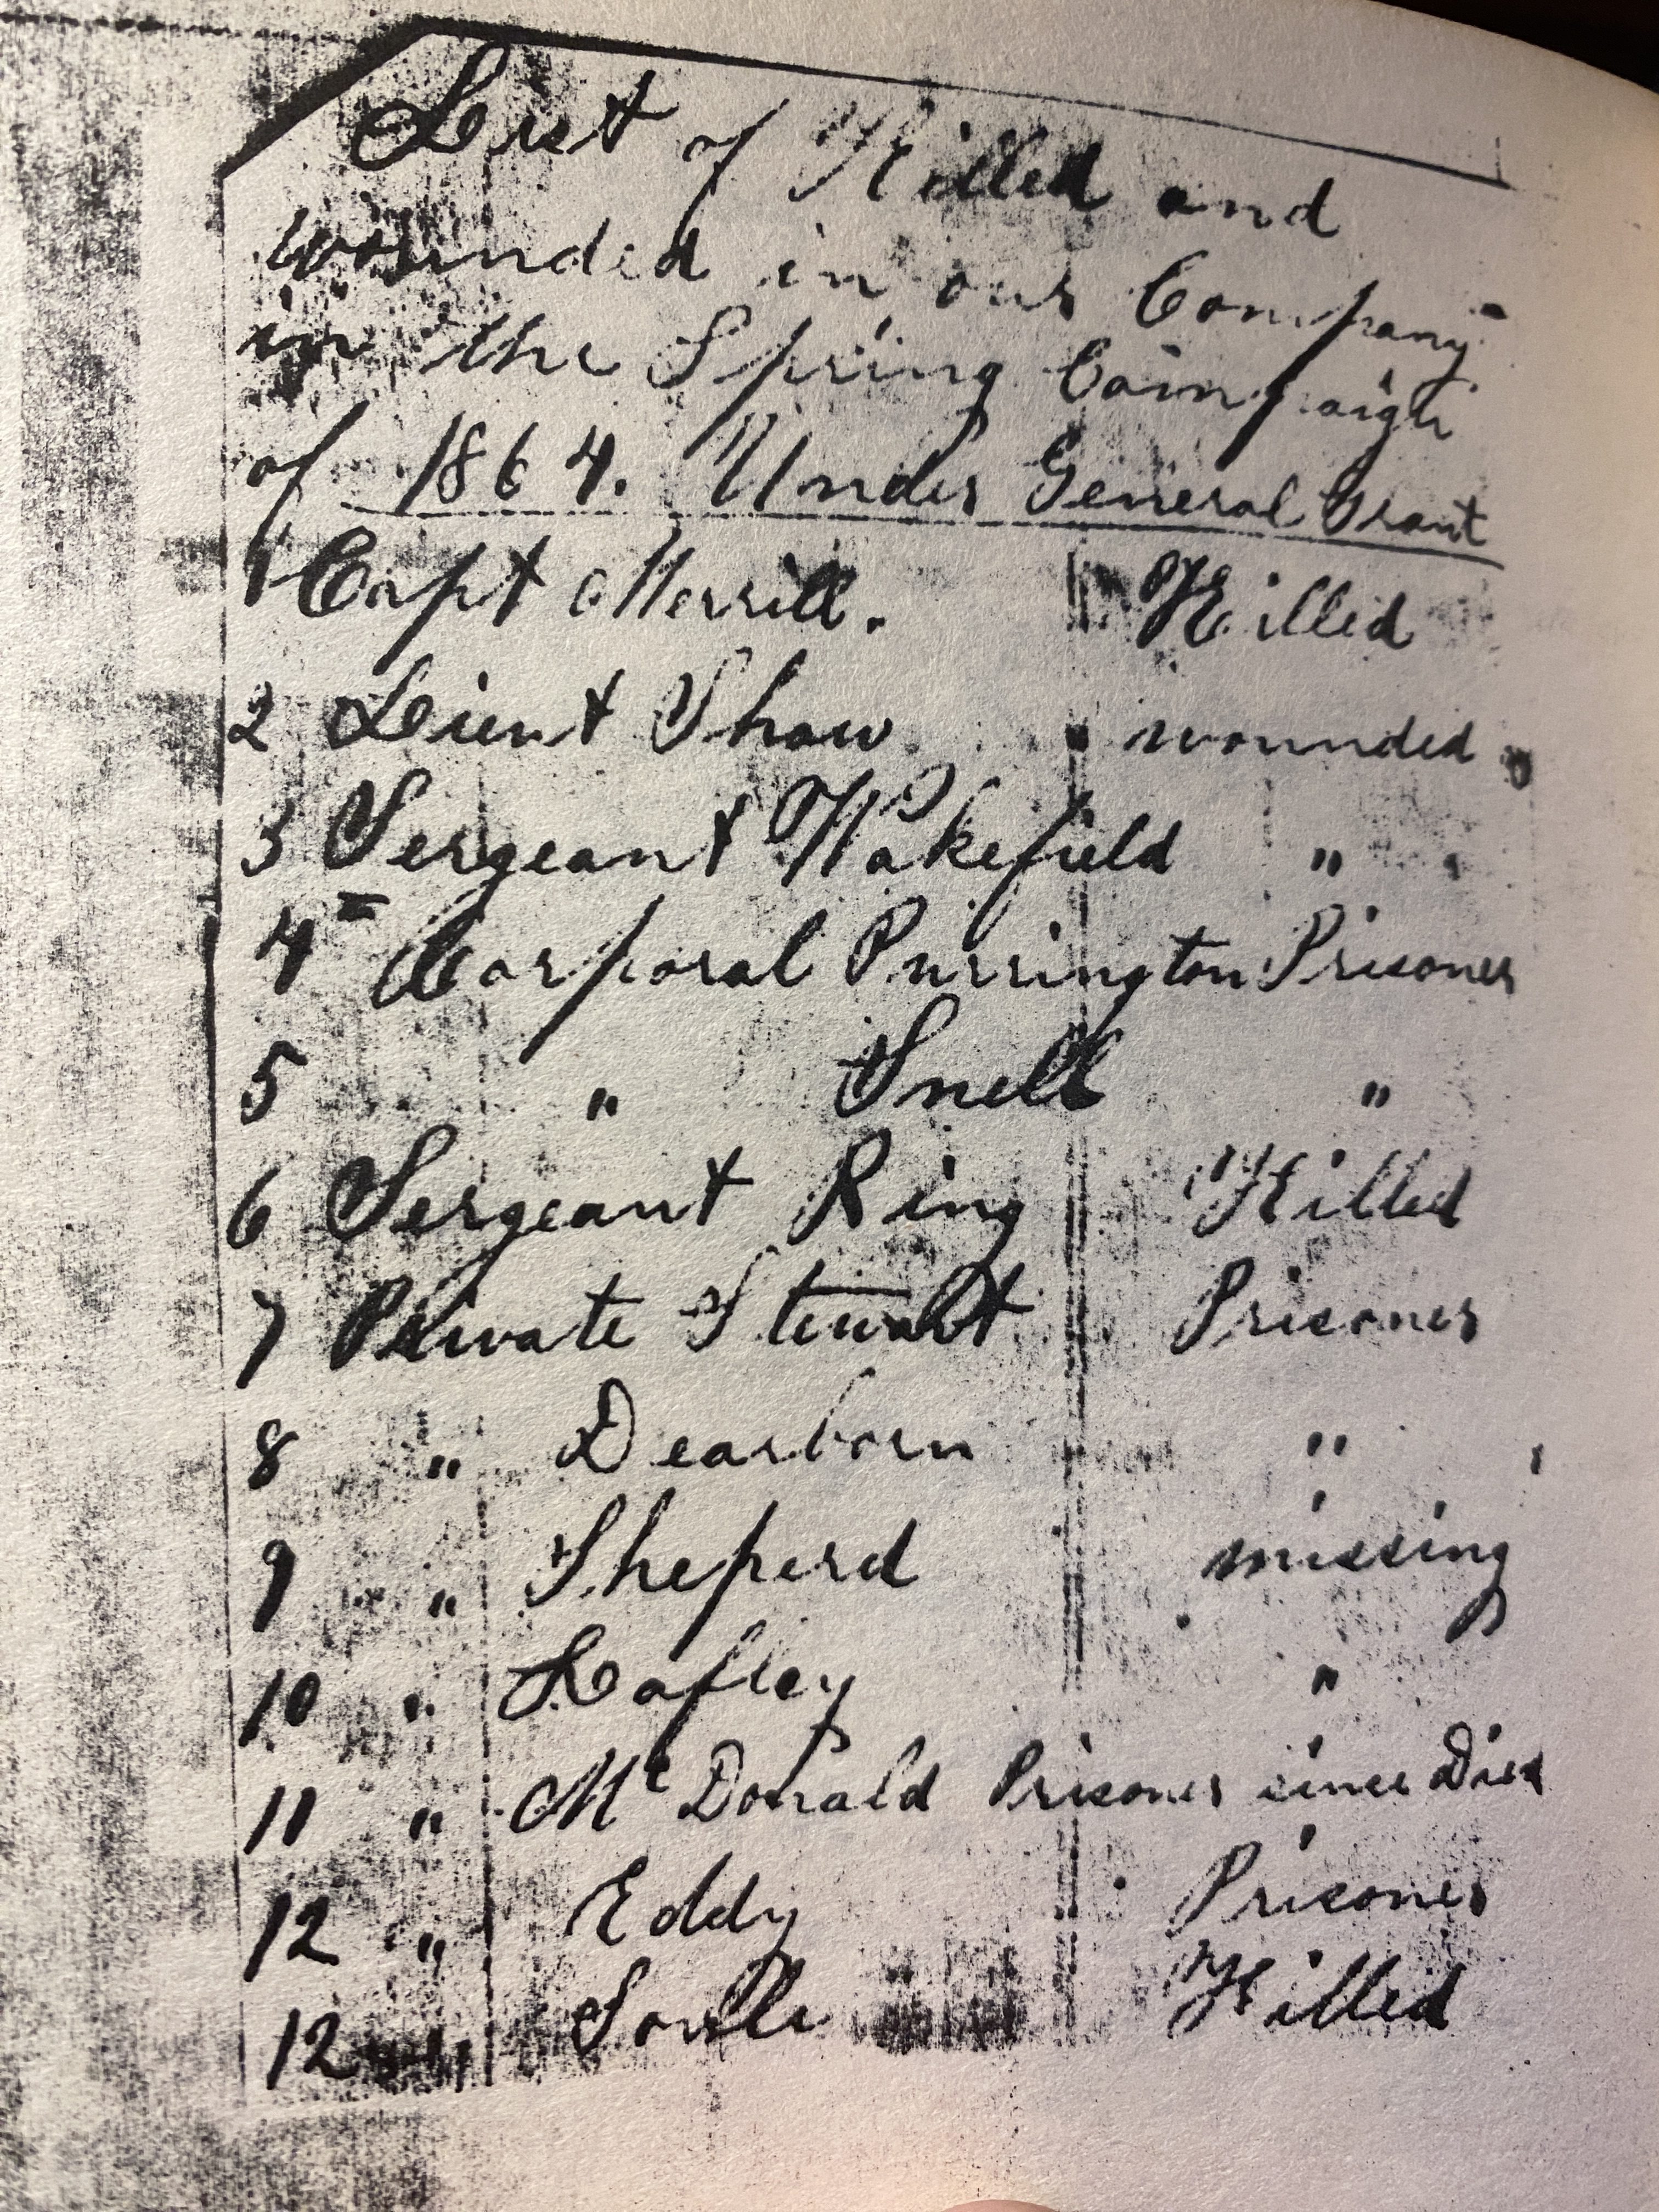 List of Killed and
wounded in our Company
in the Spring Campaign
of 1864. Under General Grant
1 Capt Merrill. Killed
2 Lieut Shaw wounded
3 Sergeant Wakefield "
4 Corporal Purrington Prisoner
5 " Snell "
6 Sergeant Ring Killed
7 Private Stewart Prisoner
8 " Dearborn "
9 " Sheperd missing
10 " "
11 " Mc Donald Prisoner since Died
12 " Eddy Prisoner
12 " Soulle Killed